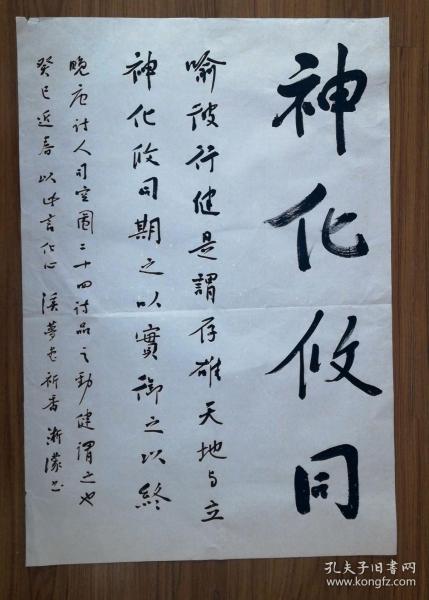 神化攸同
喻彼行健是謂存雄天地与立
神化攸同期之以實御之以終
晚唐诗人司空圖二十四诗品之勁健謂之也
癸巳近春以此言化心 溪夢 祈香 漸濛书
孔夫子旧书网
www.kongfz.com